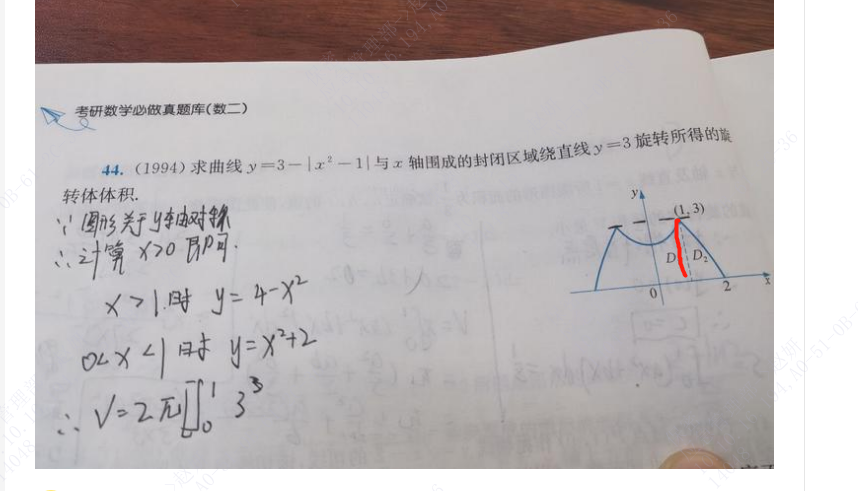 考研数学必做真题库(数二)
44. (1994) 求曲线 y=3-|x²-1| 与 x 轴围成的封闭区域绕直线 y=3 旋转所得的旋
转体体积.
∵ 图形关于y轴对称
∴ 计算 x>0 即可.
x>1时 y=4-x²
0<x<1时 y=x²+2
∴ V=2π[∫₀¹ 3³
y
(1, 3)
D
D₂
0
2
x